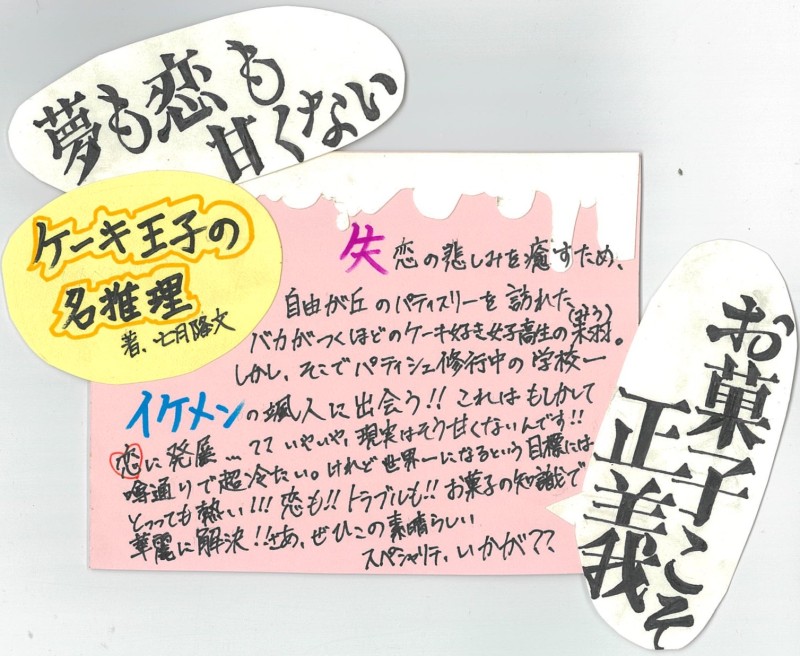 夢も恋も
甘くない
ケーキ王子の
名推理
著、七月隆文
失恋の悲しみを癒すため、
自由が丘のパティスリーを訪れた
バカがつくほどのケーキ好き女子高生の未羽(みう)。
しかし、そこでパティシエ修行中の学校一
イケメンの颯人に出会う!! これはもしかして
恋に発展…?? いやいや、現実はそう甘くないんです!!
噂通りで超冷たい。けれど世界一になるという目標には
とっっても熱い!!! 恋も!! トラブルも!! お菓子の知識で
華麗に解決!! さあ、ぜひこの素晴らしい
スペシャリテ、いかが??
お菓子こそ
正義